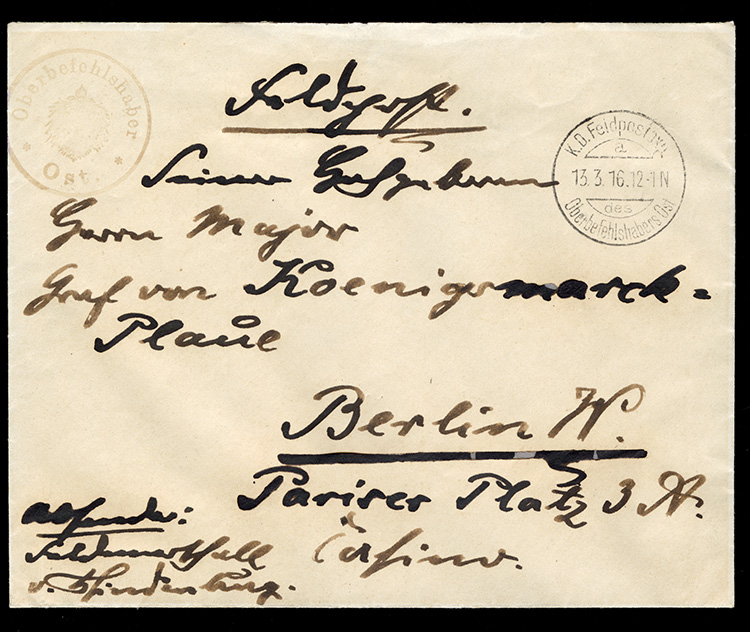 Oberbefehlshaber
* Ost. *
Feldpost.
K.D. Feldpostamt
a
13.3.16.12-1N
des
Oberbefehlshabers Ost
Seiner Hochgeboren
Herrn Major
Graf von Koenigsmarck-
Plaue
Berlin W.
Pariser Platz 3 A.
Casino.
Absender:
Feldmarschall
v. Hindenburg.